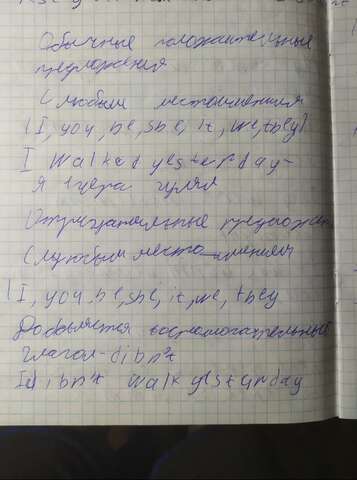 Обычные положительные
предложения
С любым местоимениям
(I, you, he, she, it, we, they)
I walked yesterday-
я вчера гулял
Отрицательные предложен
С любым место имениям
(I, you he, she, it, we, they
Добавляется воспомогательный
глагол-dibn't
I dibn't walk yesterday